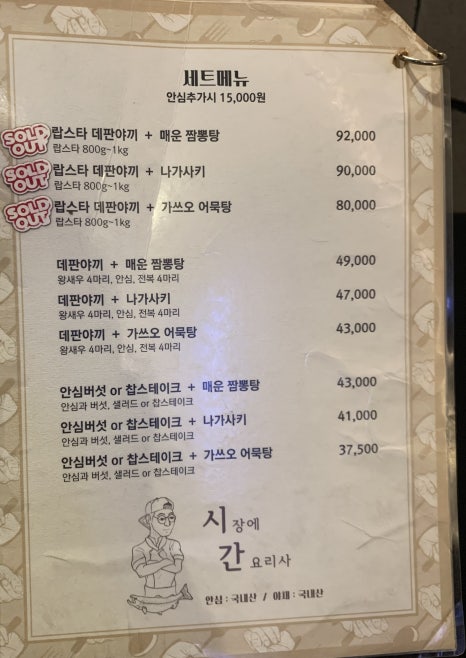 세트메뉴
안심추가시 15,000원
SOLD OUT 랍스타 데판야끼 + 매운 짬뽕탕 92,000
랍스타 800g~1kg
SOLD OUT 랍스타 데판야끼 + 나가사키 90,000
랍스타 800g~1kg
SOLD OUT 랍스타 데판야끼 + 가쓰오 어묵탕 80,000
랍스타 800g~1kg
데판야끼 + 매운 짬뽕탕 49,000
왕새우 4마리, 안심, 전복 4마리
데판야끼 + 나가사키 47,000
왕새우 4마리, 안심, 전복 4마리
데판야끼 + 가쓰오 어묵탕 43,000
왕새우 4마리, 안심, 전복 4마리
안심버섯 or 찹스테이크 + 매운 짬뽕탕 43,000
안심과 버섯, 샐러드 or 찹스테이크
안심버섯 or 찹스테이크 + 나가사키 41,000
안심과 버섯, 샐러드 or 찹스테이크
안심버섯 or 찹스테이크 + 가쓰오 어묵탕 37,500
안심과 버섯, 샐러드 or 찹스테이크
시장에
간요리사
안심 : 국내산 / 야채 : 국내산